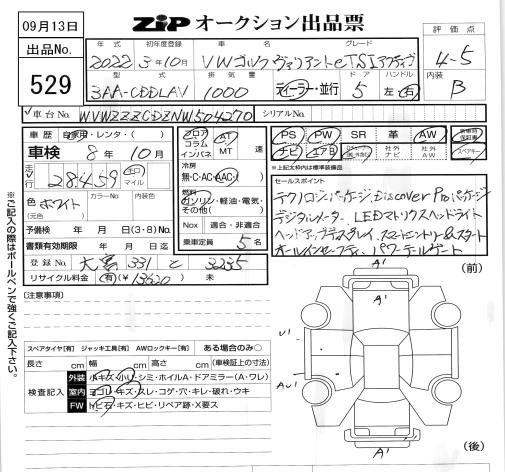 09月13日
ZIP オークション出品票
出品No.
529
年式 初年度登録 車名 グレード
2022 3年10月 VWゴルフ ヴァリアントeTSIアクティブ
型式 排気量 ドア ハンドル
3AA-CDDLAV 1000 ディーラー・並行 5 左・右
評価点
4-5
内装
B
車台No. WVWZZZCDZNW504270 シリアルNo.
車歴 自家用・レンタ・( )
車検 8年 10月
走行 28459 km マイル
色 ホワイト カラーNo. 内装色
(元色)
予備検 年 月 日(3・8)No.
書類有効期限 年 月 日迄
登録No. 大宮 331 と 3235
リサイクル料金 有(¥13620) 未
シフト
フロア AT
コラム
インパネ MT 速
冷房
無・C・AC・AAC
燃料
ガソリン・軽油・電気・
その他( )
Nox 適合・非適合
乗車定員 5名
PS PW SR 革 AW
ナビ エアB 社外ナビ 社外AW
新車時保証書
スペアキー
※上記太枠内は標準装備品
セールスポイント
テクノロジーパッケージ、Discover Proパッケージ
デジタルメーター、LEDマトリクスヘッドライト
ヘッドアップディスプレイ、スマートエントリー&スタート
オールインセーフティ、パワーテールゲート
[注意事項]
スペアタイヤ[有] ジャッキ工具[有] AWロックキー[有] ある場合のみ〇
長さ cm 幅 cm 高さ cm (車検証上の寸法)
検査記入
外装 小キズ・小U・シミ・ホイルA・ドアミラー(A・ワレ)
室内 ヨゴレ・キズ・スレ・コゲ・穴・キレ・破れ・ウキ
FW トビ石・キズ・ヒビ・リペア跡・X要ス
※ご記入の際はボールペンで強くご記入下さい。
(前)
A'
A'
U'
AU'
A'
A'
(後)